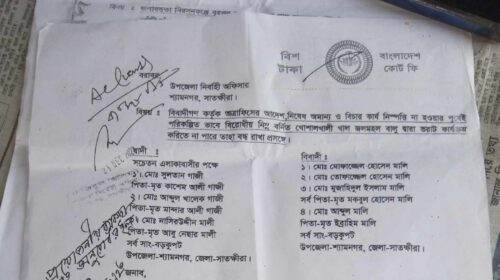 বিষয় ঃ
বিশ
টাকা
বাংলাদেশ
কোর্ট ফি
বরাবর
উপজেলা নির্বাহী অফিসার
শ্যামনগর, সাতক্ষীরা।
বিষয় ঃ বিবাদীগণ কর্তৃক অত্রাফিসের আদেশ,নিষেধ অমান্য ও বিচার কার্য নিস্পত্তি না হওয়ার পূর্বেই
পরিকল্পিত ভাবে বিরোধীয় নিম্ন বর্নিত খোশালখালী খাল জলমহল বালু দ্বারা ভরাট কার্যক্রম
করিতে না পারে তাহা বন্ধ রাখা প্রসঙ্গে।
বাদী ঃ
সচেতন এলাকাবাসীর পক্ষে
১। মোঃ সুলতান গাজী
পিতা-মৃত কাশেম আলী গাজী
২। মোঃ আব্দুল খালেক গাজী
পিতা-মৃত মান্দার আলী গাজী
৩। মোঃ নাসিরউদ্দীন মালী
পিতা-মৃত আবু নেছার মালী
সর্ব সাং-বড়কুপট
উপজেলা-শ্যামনগর, জেলা-সাতক্ষীরা।
বিবাদী ঃ
১। মোঃ মোফাজ্জেল হোসেন মালি
২। মোঃ তোফাজ্জেল হোসেন মালি
৩। মোঃ মুজাহিদুল ইসলাম মালি
সর্ব পিতা-মৃত মকবুল হোসেন মালি
৪। মোঃ আব্দুল মালি
পিতা-মৃত ইব্রাহিম মালি
সর্ব সাং-বড়কুপট
উপজেলা-শ্যামনগর, জেলা-সাতক্ষীরা।
জনাব,